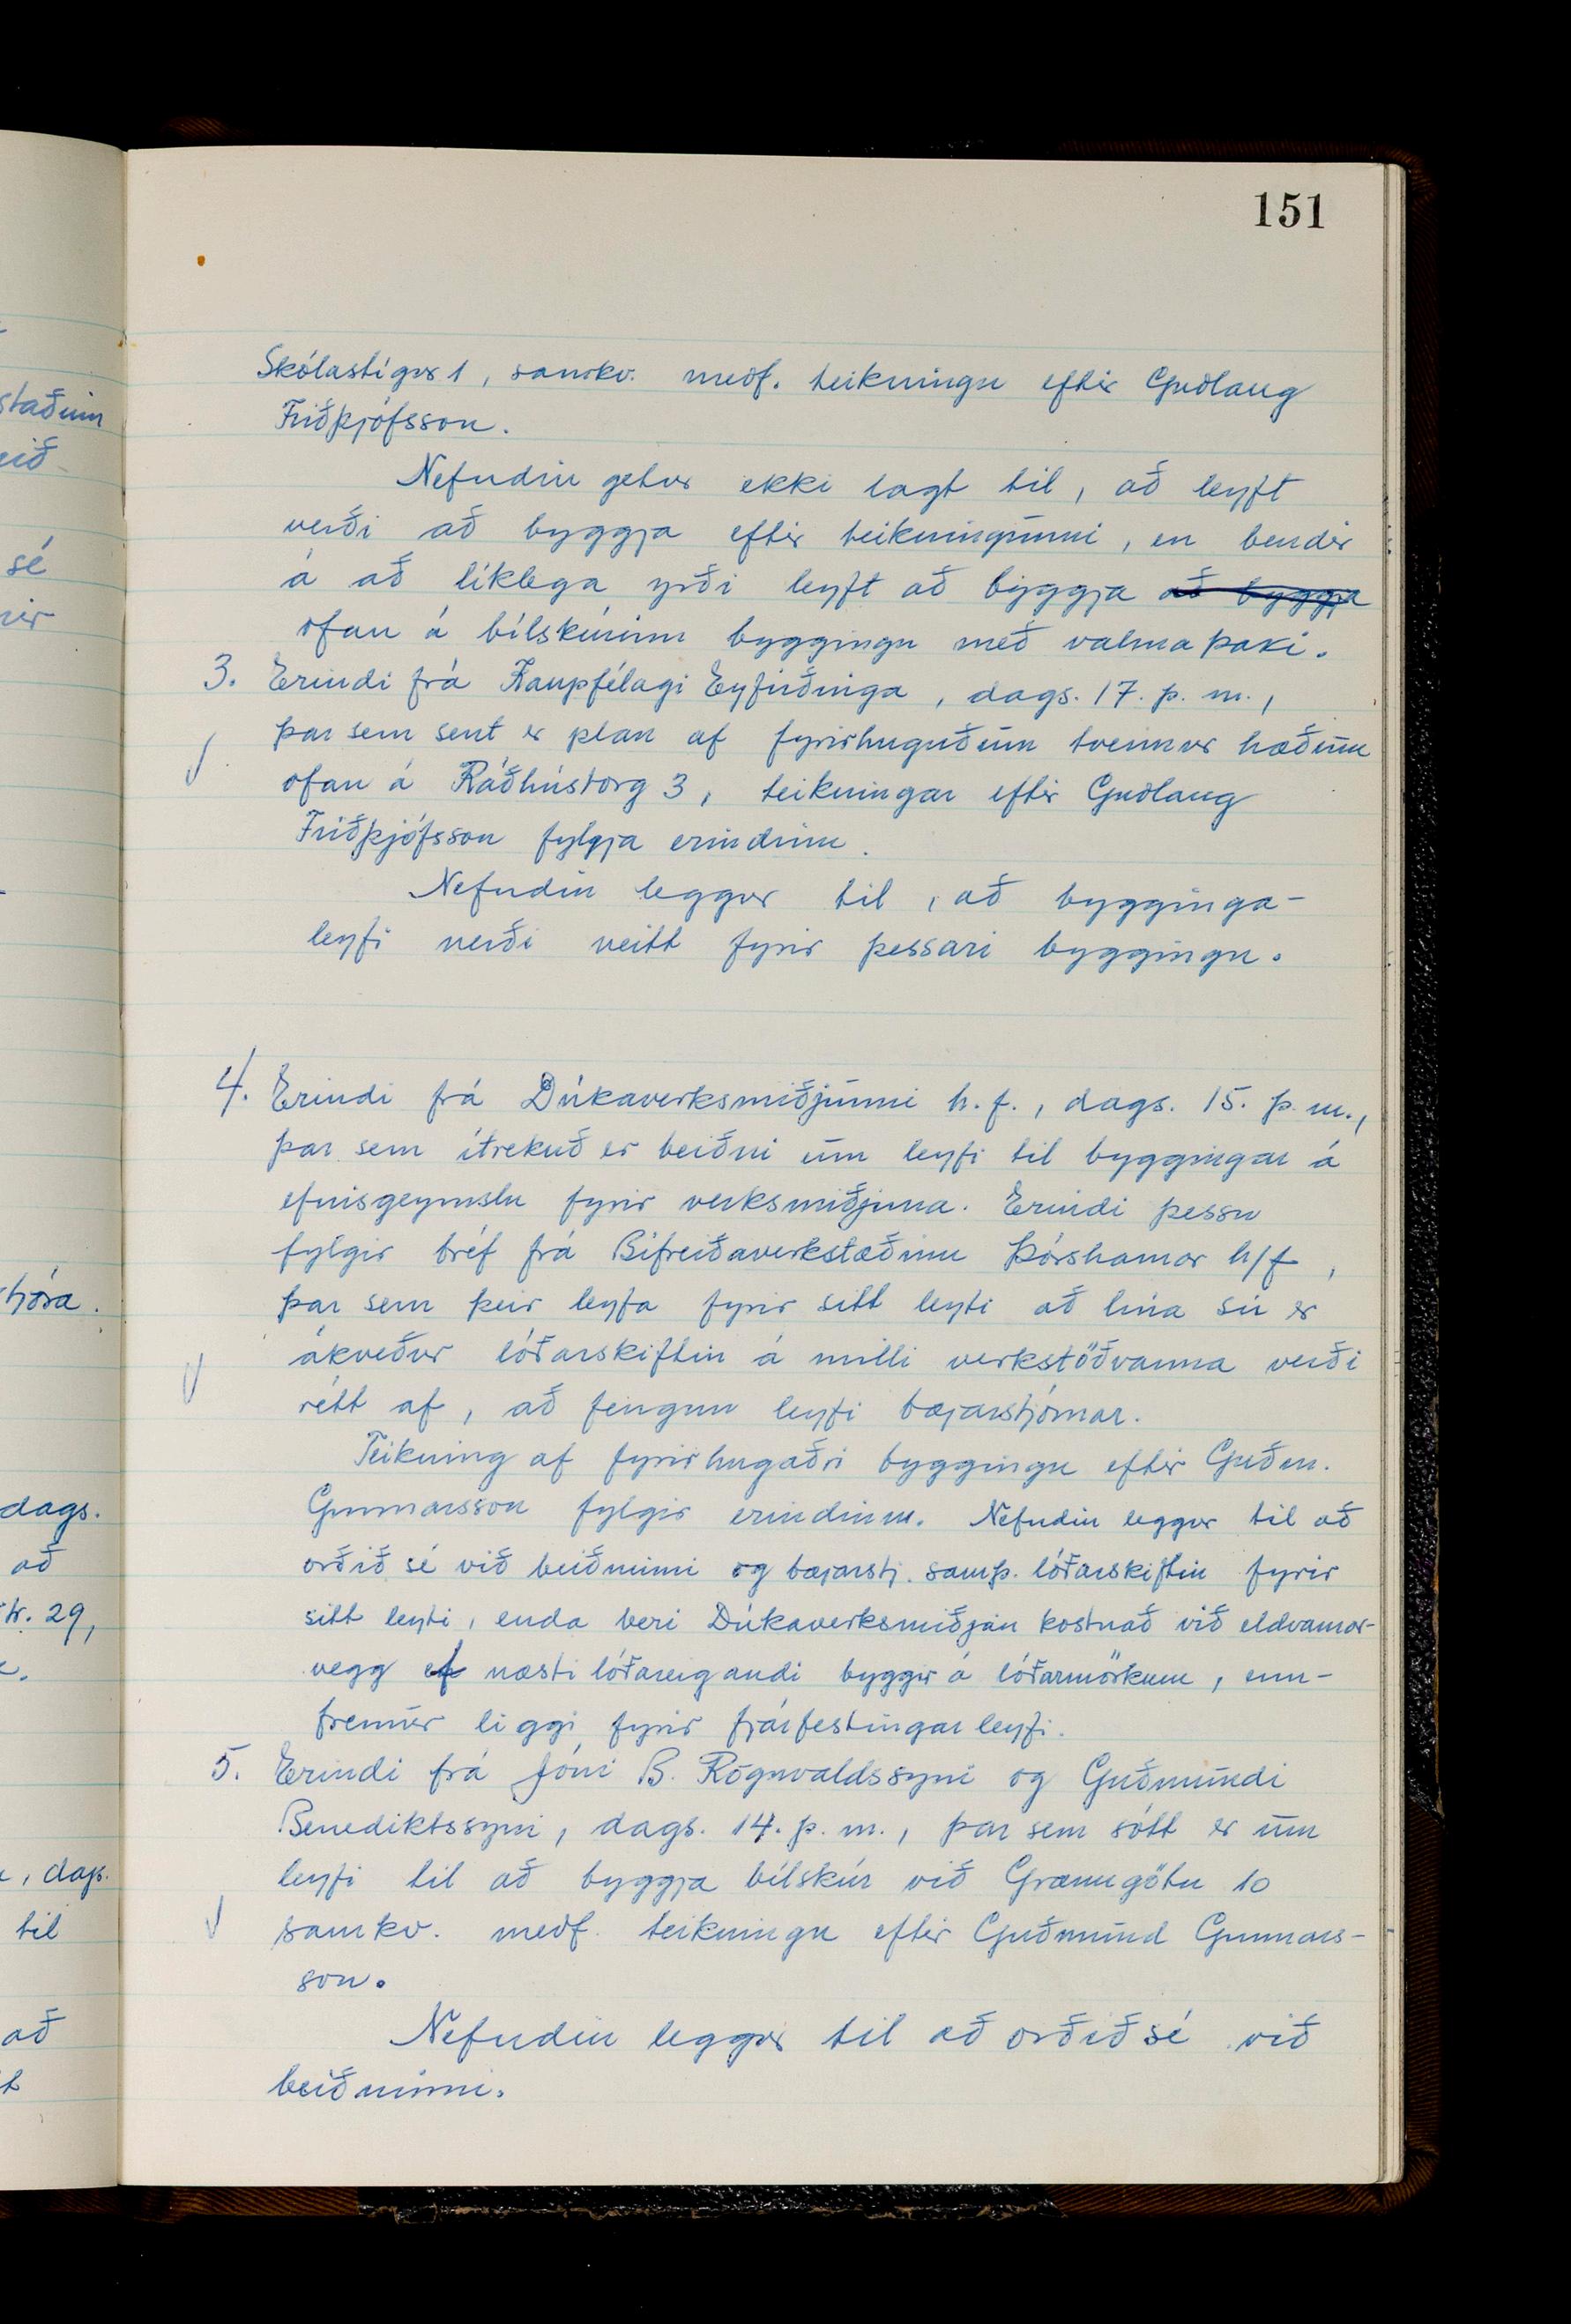 151
Skólastígur 1, samkv. meðf. teikningu eftir Guðlaug
Friðþjófsson.
Nefndin getur ekki lagt til, að leyft
verði að byggja eftir teikningunni, en bendir
á að líklega yrði leyft að byggja að byggja
ofan á bílskúrinn byggingu með valmaþaki.
3. Erindi frá Kaupfélagi Eyfirðinga, dags. 17. þ. m.,
þar sem sent er plan af fyrirhuguðum tveimur hæðum
ofan á Ráðhústorg 3, teikningar eftir Guðlaug
Friðþjófsson fylgja erindinu.
Nefndin leggur til, að bygginga-
leyfi verði veitt fyrir þessari byggingu.
4. Erindi frá Dúkaverksmiðjunni h.f., dags. 15. þ. m.,
þar sem ítrekuð er beiðni um leyfi til byggingar á
efnisgeymslu fyrir verksmiðjuna. Erindi þessu
fylgir bréf frá Bifreiðaverkstæðinu Þórshamar h/f,
þar sem þeir leyfa fyrir sitt leyti að lína sú er
ákveður lóðarskiftin á milli verkstöðvanna verði
rétt af, að fengnu leyfi bæjarstjórnar.
Teikning af fyrirhugaðri byggingu eftir Guðm.
Gunnarsson fylgir erindinu. Nefndin leggur til að
orðið sé við beiðninni og bæjarstj. samþ. lóðarskiftin fyrir
sitt leyti, enda beri Dúkaverksmiðjan kostnað við eldvarnar-
vegg ef næsti lóðareigandi byggir á lóðarmörkum, enn-
fremur liggi fyrir fjárfestingarleyfi.
5. Erindi frá Jóni B. Rögnvaldssyni og Guðmundi
Benediktssyni, dags. 14. þ. m., þar sem sótt er um
leyfi til að byggja bílskúr við Grænugötu 10
samkv. meðf. teikningu eftir Guðmund Gunnars-
son.
Nefndin leggur til að orðið sé við
beiðninni.